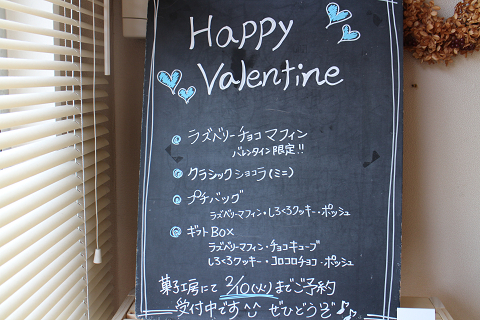 Happy
Valentine
ラズベリーチョコマフィン
バレンタイン限定!!
クラシックショコラ(ミニ)
プチバッグ
ラズベリーマフィン・しろくろクッキー・ポッシュ
ギフトBOX
ラズベリーマフィン・チョコキューブ
しろくろクッキー・コロコロチョコ・ポッシュ
菓子工房にて 2/10(火)までご予約
受付中です ぜひどうぞ♪♪